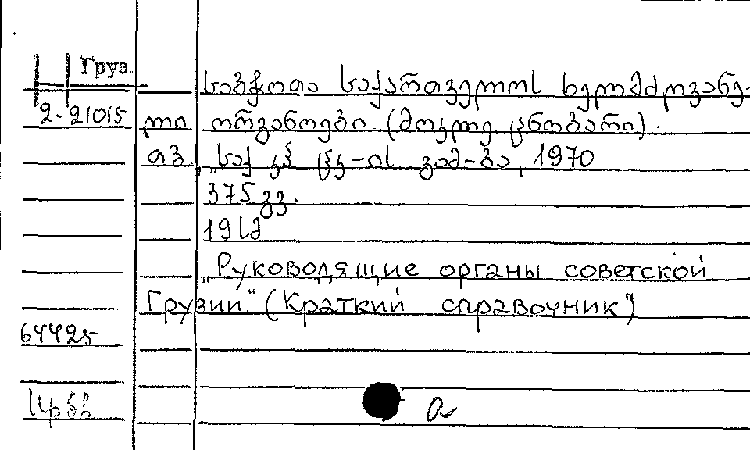 Груз.
საბჭოთა საქართველოს ხელმძღვანე-
2-21015 ლი ორგანოები (მოკლე ცნობარი).
თბ., „საქ კპ ცკ-ის გამ-ბა, 1970
375 გვ.
19სმ
„Руководящие органы советской
Грузии" (Краткий справочник)
64425
а